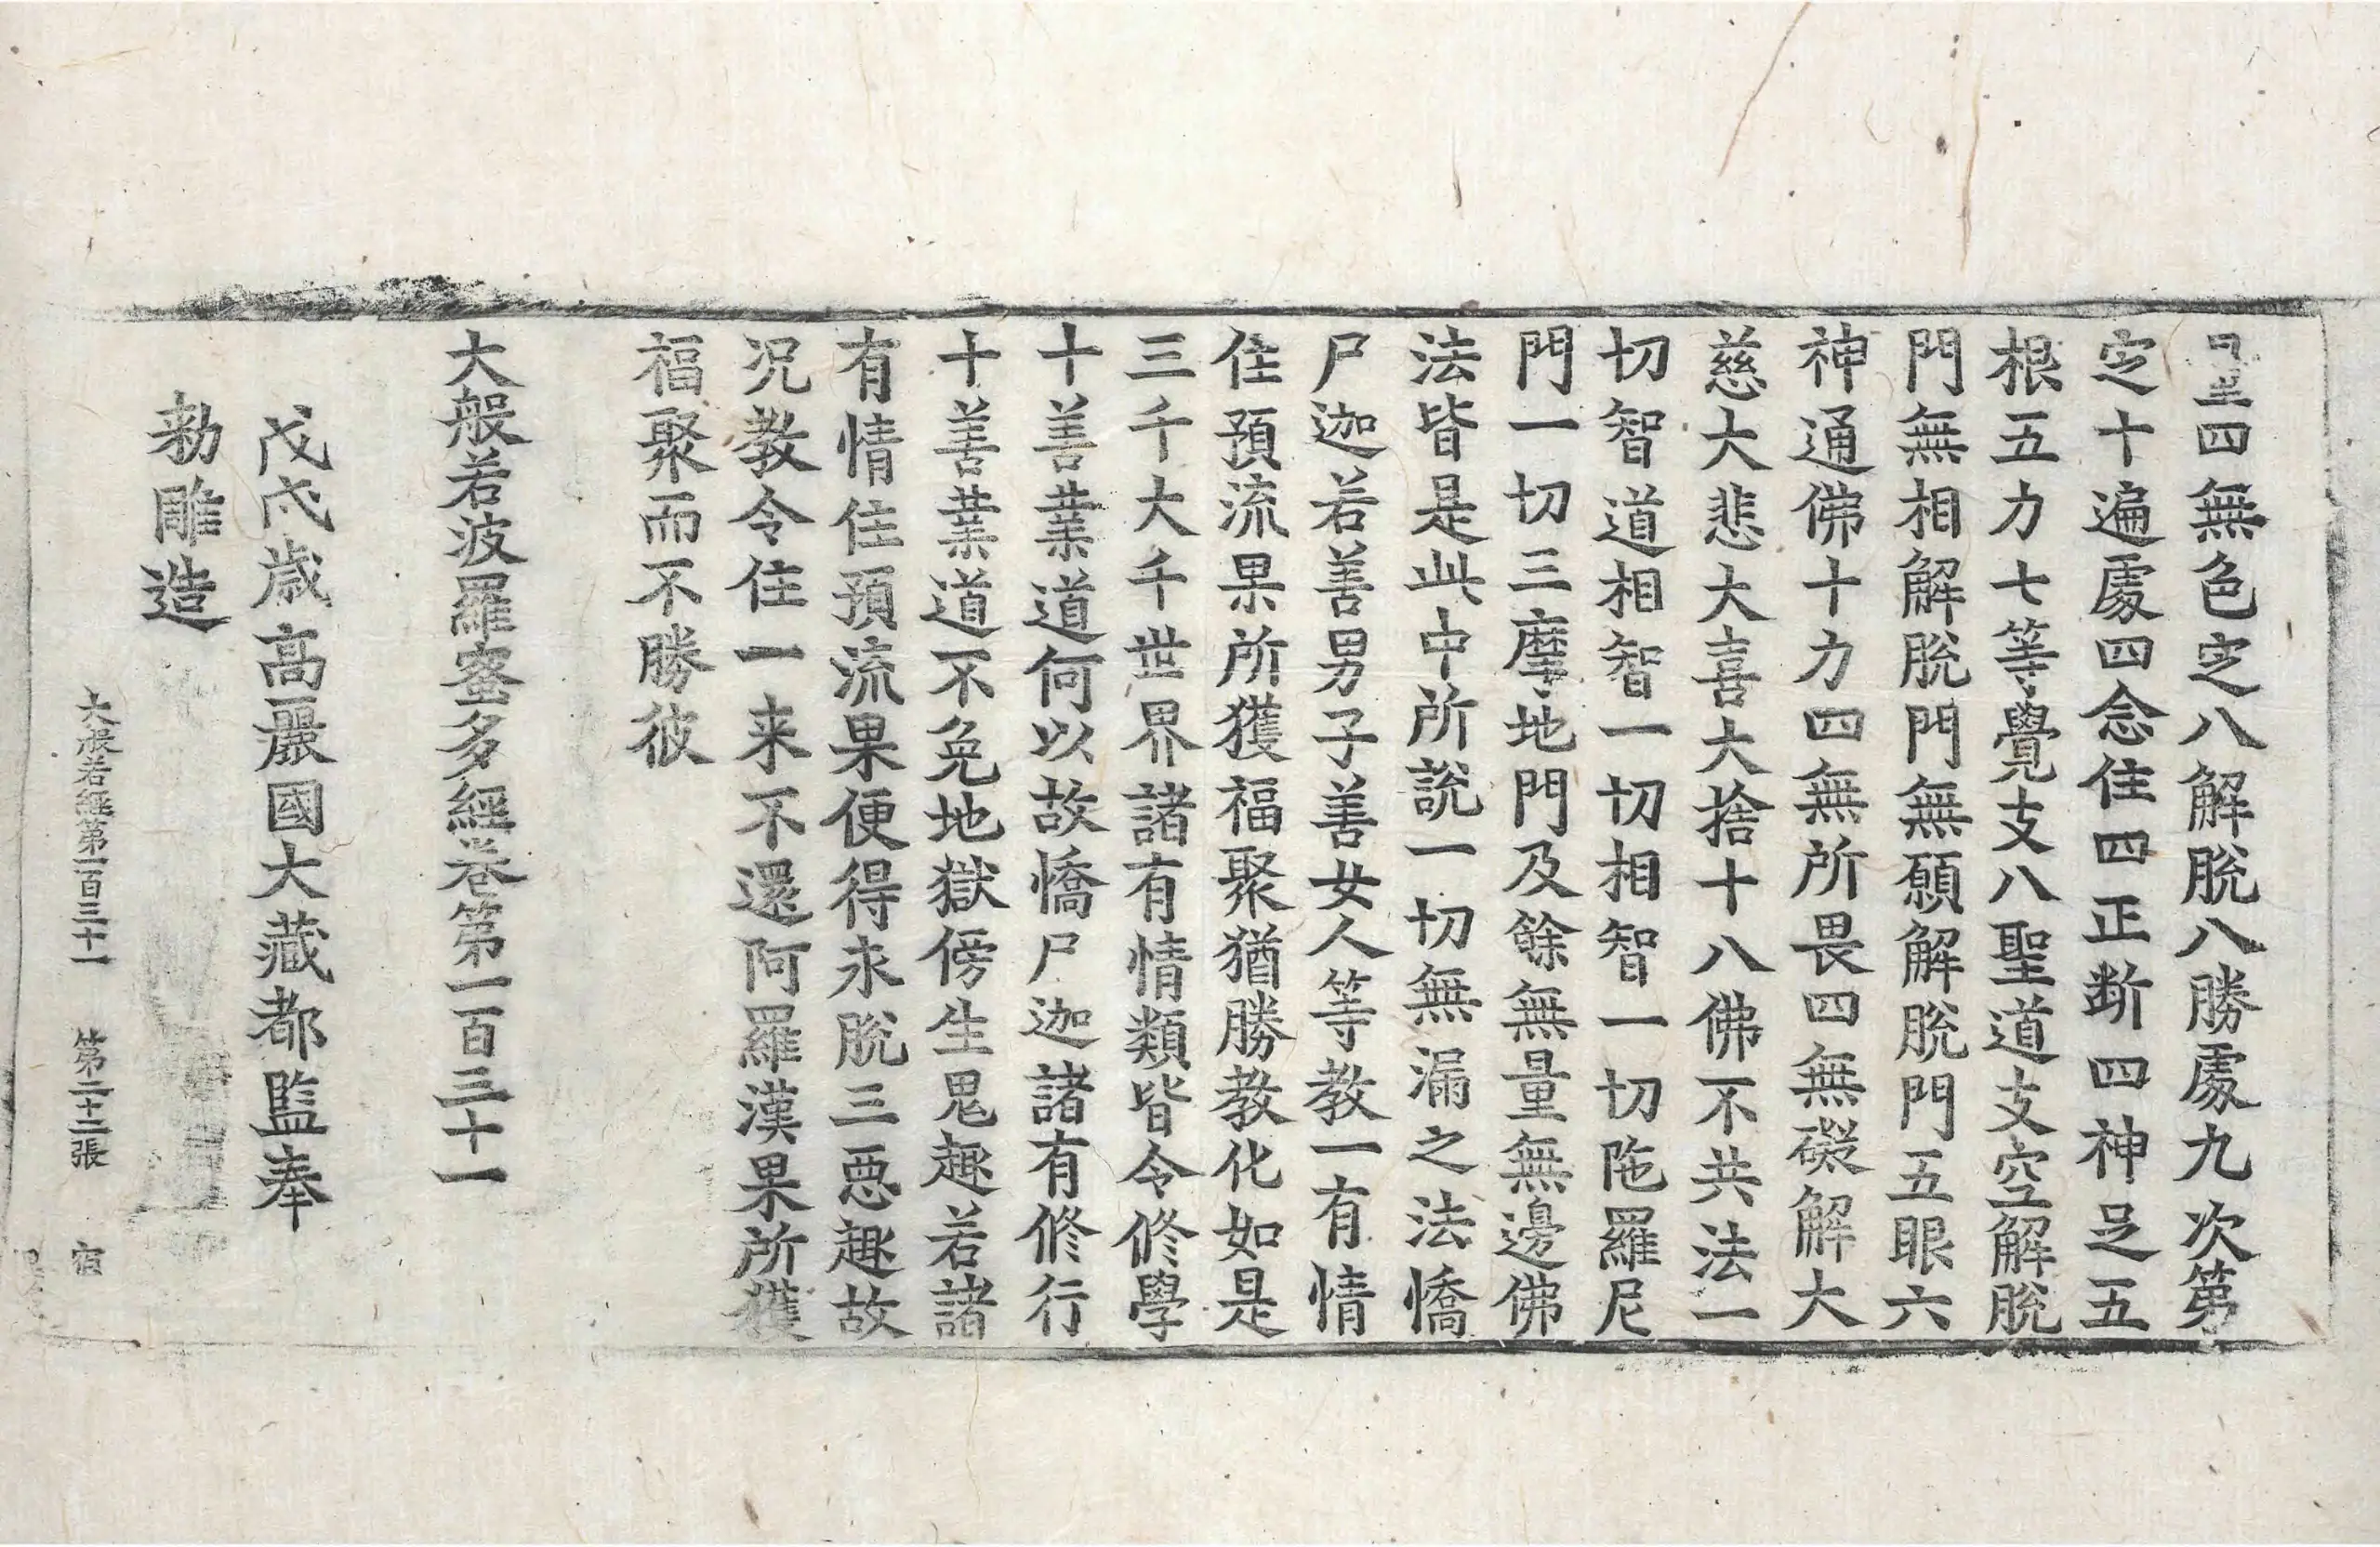 四無色定八解脫八勝處九次第
定十遍處四念住四正断四神足五
根五力七等覺支八聖道支空解脫
門無相解脫門無願解脫門五眼六
神通佛十力四無所畏四無礙解大
慈大悲大喜大捨十八佛不共法一
切智道相智一切相智一切陁羅尼
門一切三摩地門及餘無量無邊佛
法皆是此中所說一切無漏之法憍
尸迦若善男子善女人等教一有情
住預流果所獲福聚猶勝教化如是
三千大千世界諸有情類皆令修學
十善業道何以故憍尸迦諸有修行
十善業道不免地獄傍生鬼趣若諸
有情住預流果便得永脫三惡趣故
况教令住一来不還阿羅漢果所獲
福聚而不勝彼
大般若波羅蜜多經卷第一百三十一
戊戌歲高麗國大藏都監奉
勅雕造
大般若經第一百三十一 第二十二張 宿